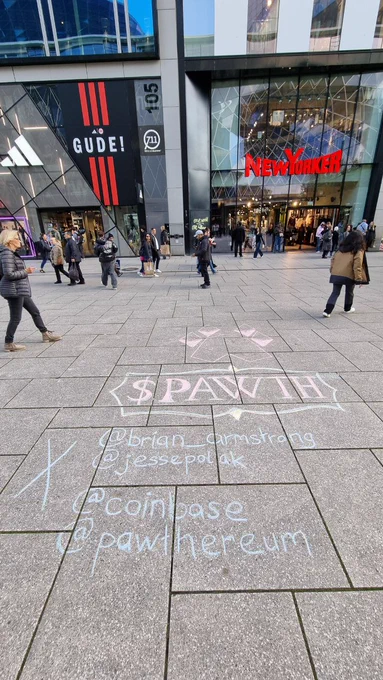 105
GUDE!
711
NEWYORKER
$PAWTH
@brian_armstrong
@jessepollak
X
@coinbase
@pawthereum